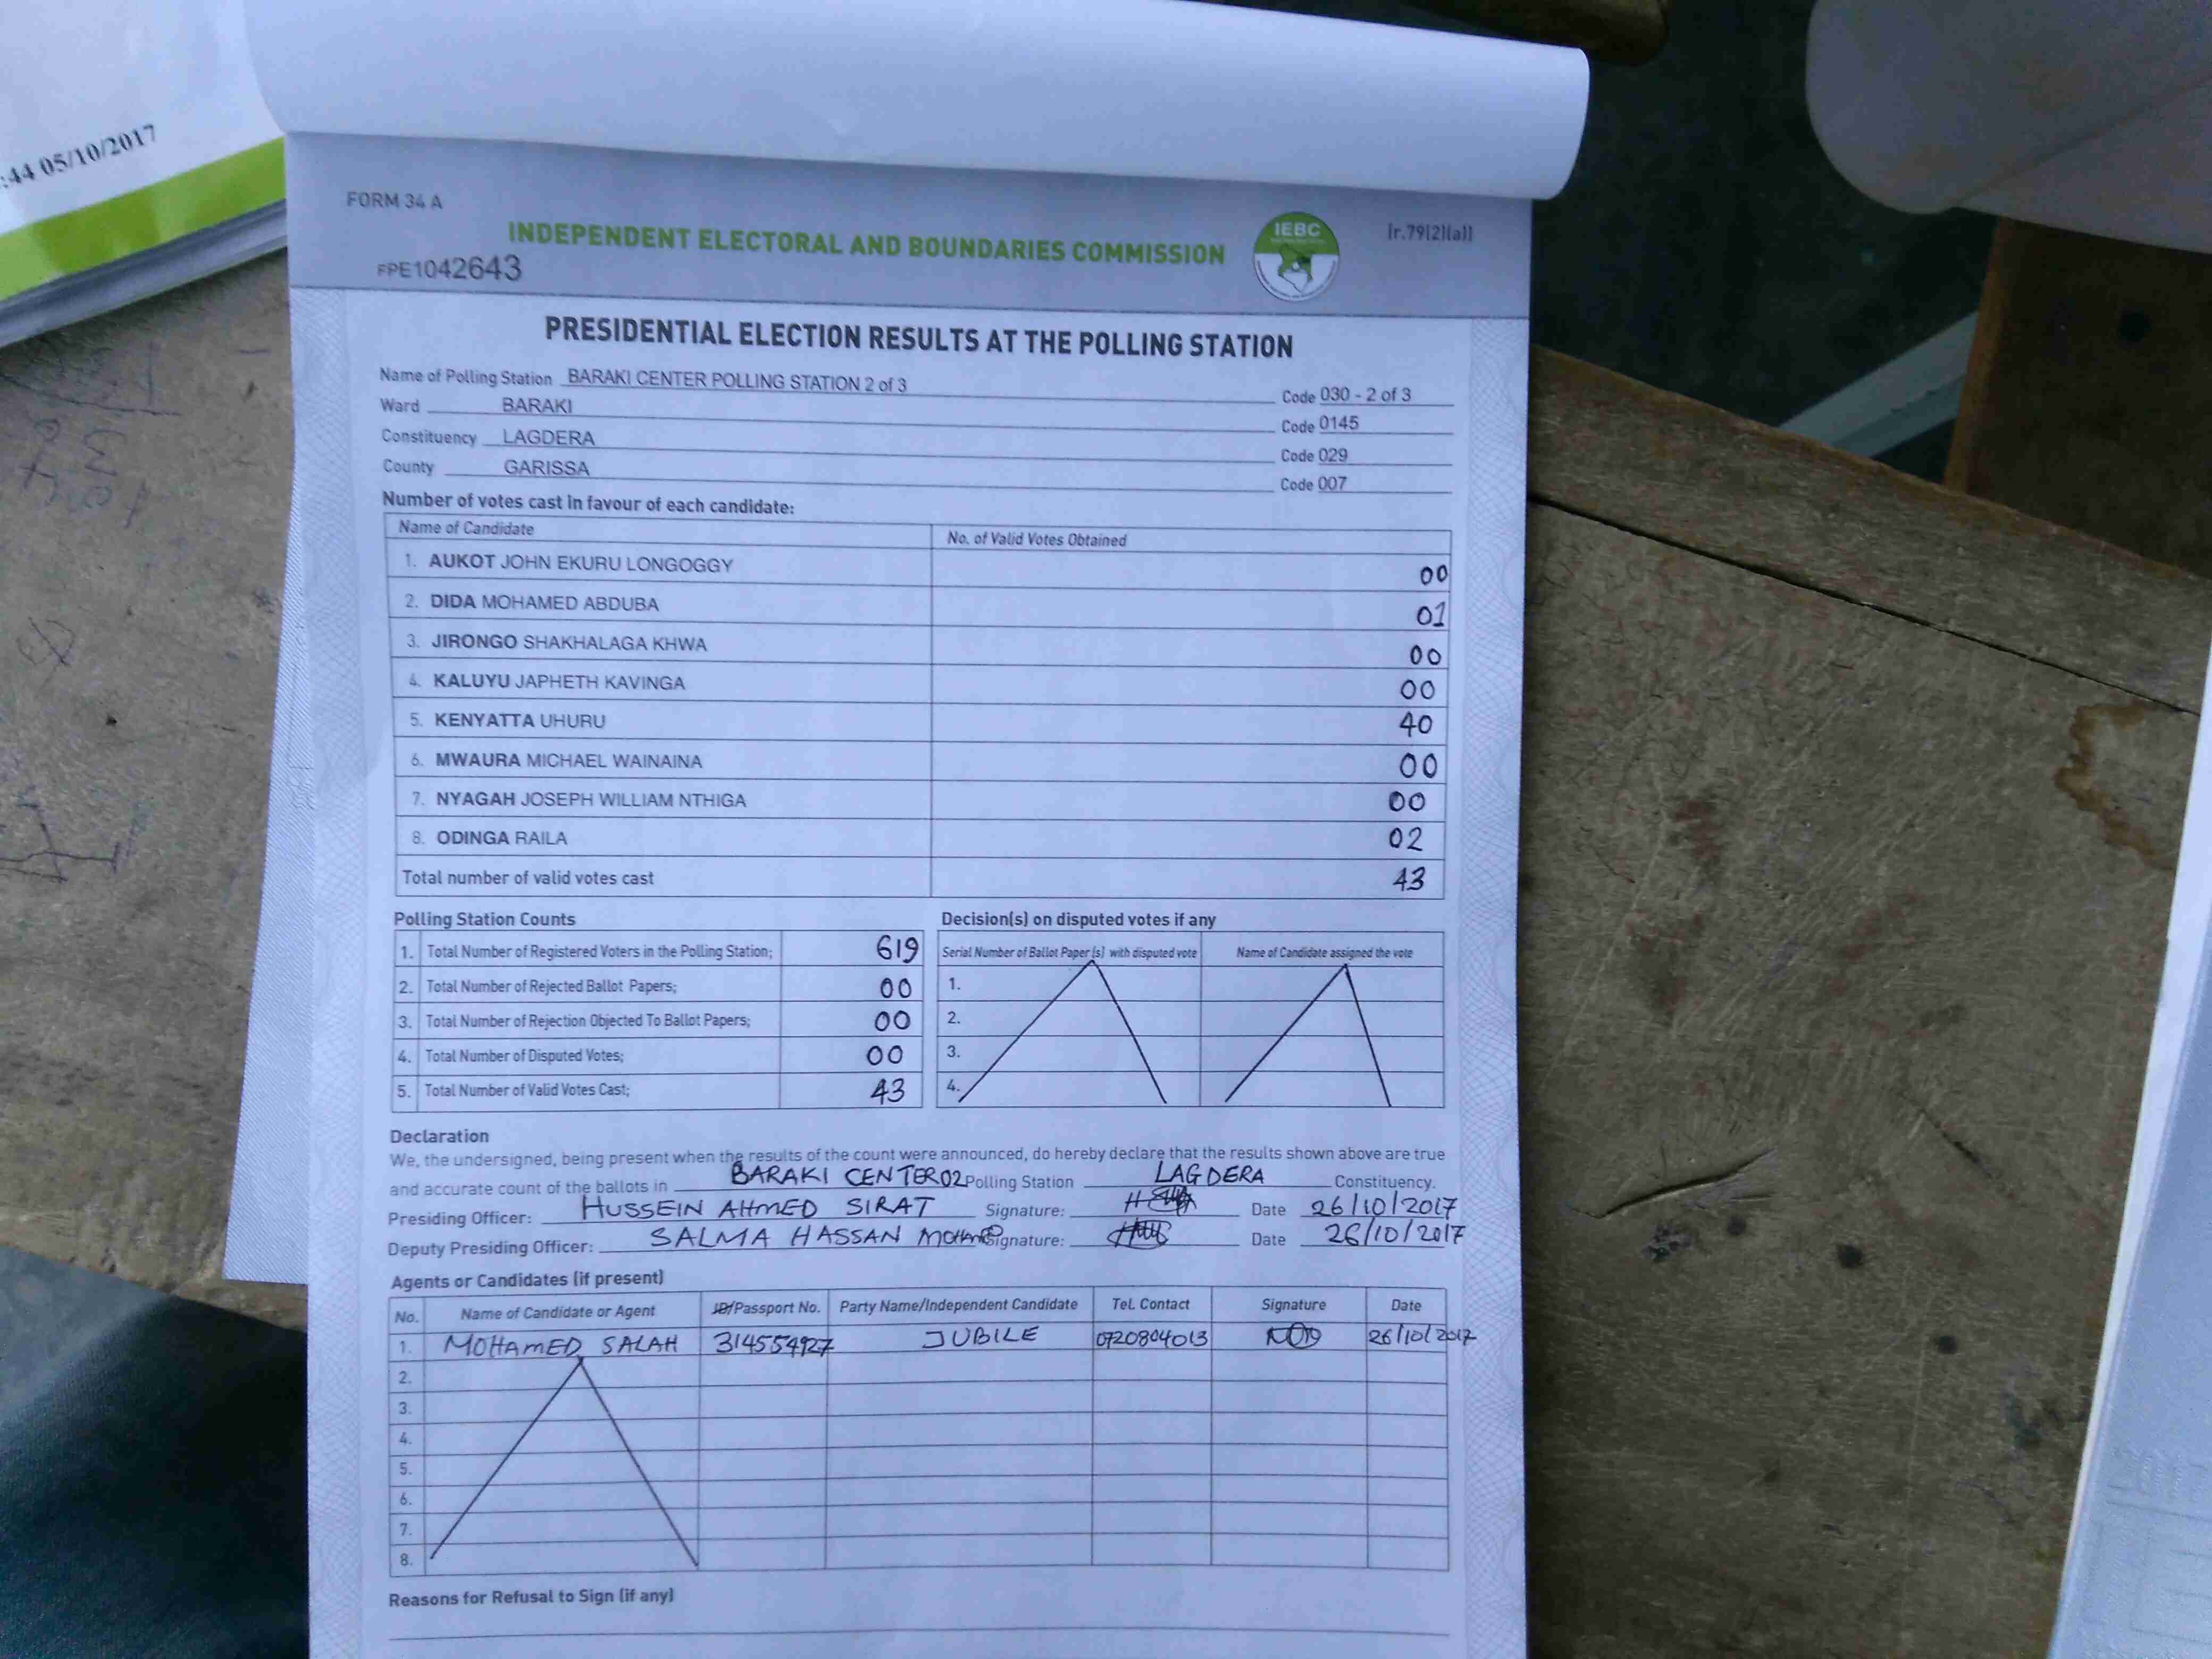 :44 05/10/2017
FORM 34 A
INDEPENDENT ELECTORAL AND BOUNDARIES COMMISSION
IEBC
(r.79(2)(a))
FPE1042643
PRESIDENTIAL ELECTION RESULTS AT THE POLLING STATION
Name of Polling Station BARAKI CENTER POLLING STATION 2 of 3 Code 030 - 2 of 3
Ward BARAKI Code 0145
Constituency LAGDERA Code 029
County GARISSA Code 007
Number of votes cast in favour of each candidate:
Name of Candidate No. of Valid Votes Obtained
1. AUKOT JOHN EKURU LONGOGGY 00
2. DIDA MOHAMED ABDUBA 01
3. JIRONGO SHAKHALAGA KHWA 00
4. KALUYU JAPHETH KAVINGA 00
5. KENYATTA UHURU 40
6. MWAURA MICHAEL WAINAINA 00
7. NYAGAH JOSEPH WILLIAM NTHIGA 00
8. ODINGA RAILA 02
Total number of valid votes cast 43
Polling Station Counts
1. Total Number of Registered Voters in the Polling Station; 619
2. Total Number of Rejected Ballot Papers; 00
3. Total Number of Rejection Objected To Ballot Papers; 00
4. Total Number of Disputed Votes; 00
5. Total Number of Valid Votes Cast; 43
Decision(s) on disputed votes if any
Serial Number of Ballot Paper (s) with disputed vote Name of Candidate assigned the vote
1.
2.
3.
4.
Declaration
We, the undersigned, being present when the results of the count were announced, do hereby declare that the results shown above are true
and accurate count of the ballots in BARAKI CENTER02 Polling Station LAGDERA Constituency.
Presiding Officer: HUSSEIN AHMED SIRAT Signature: Date 26/10/2017
Deputy Presiding Officer: SALMA HASSAN Signature: Date 26/10/2017
Agents or Candidates (if present)
No. Name of Candidate or Agent ID/Passport No. Party Name/Independent Candidate Tel. Contact Signature Date
1. MOHAMED SALAH 314554927 JUBILE 0720804013 26/10/2017
2.
3.
4.
5.
6.
7.
8.
Reasons for Refusal to Sign (if any)